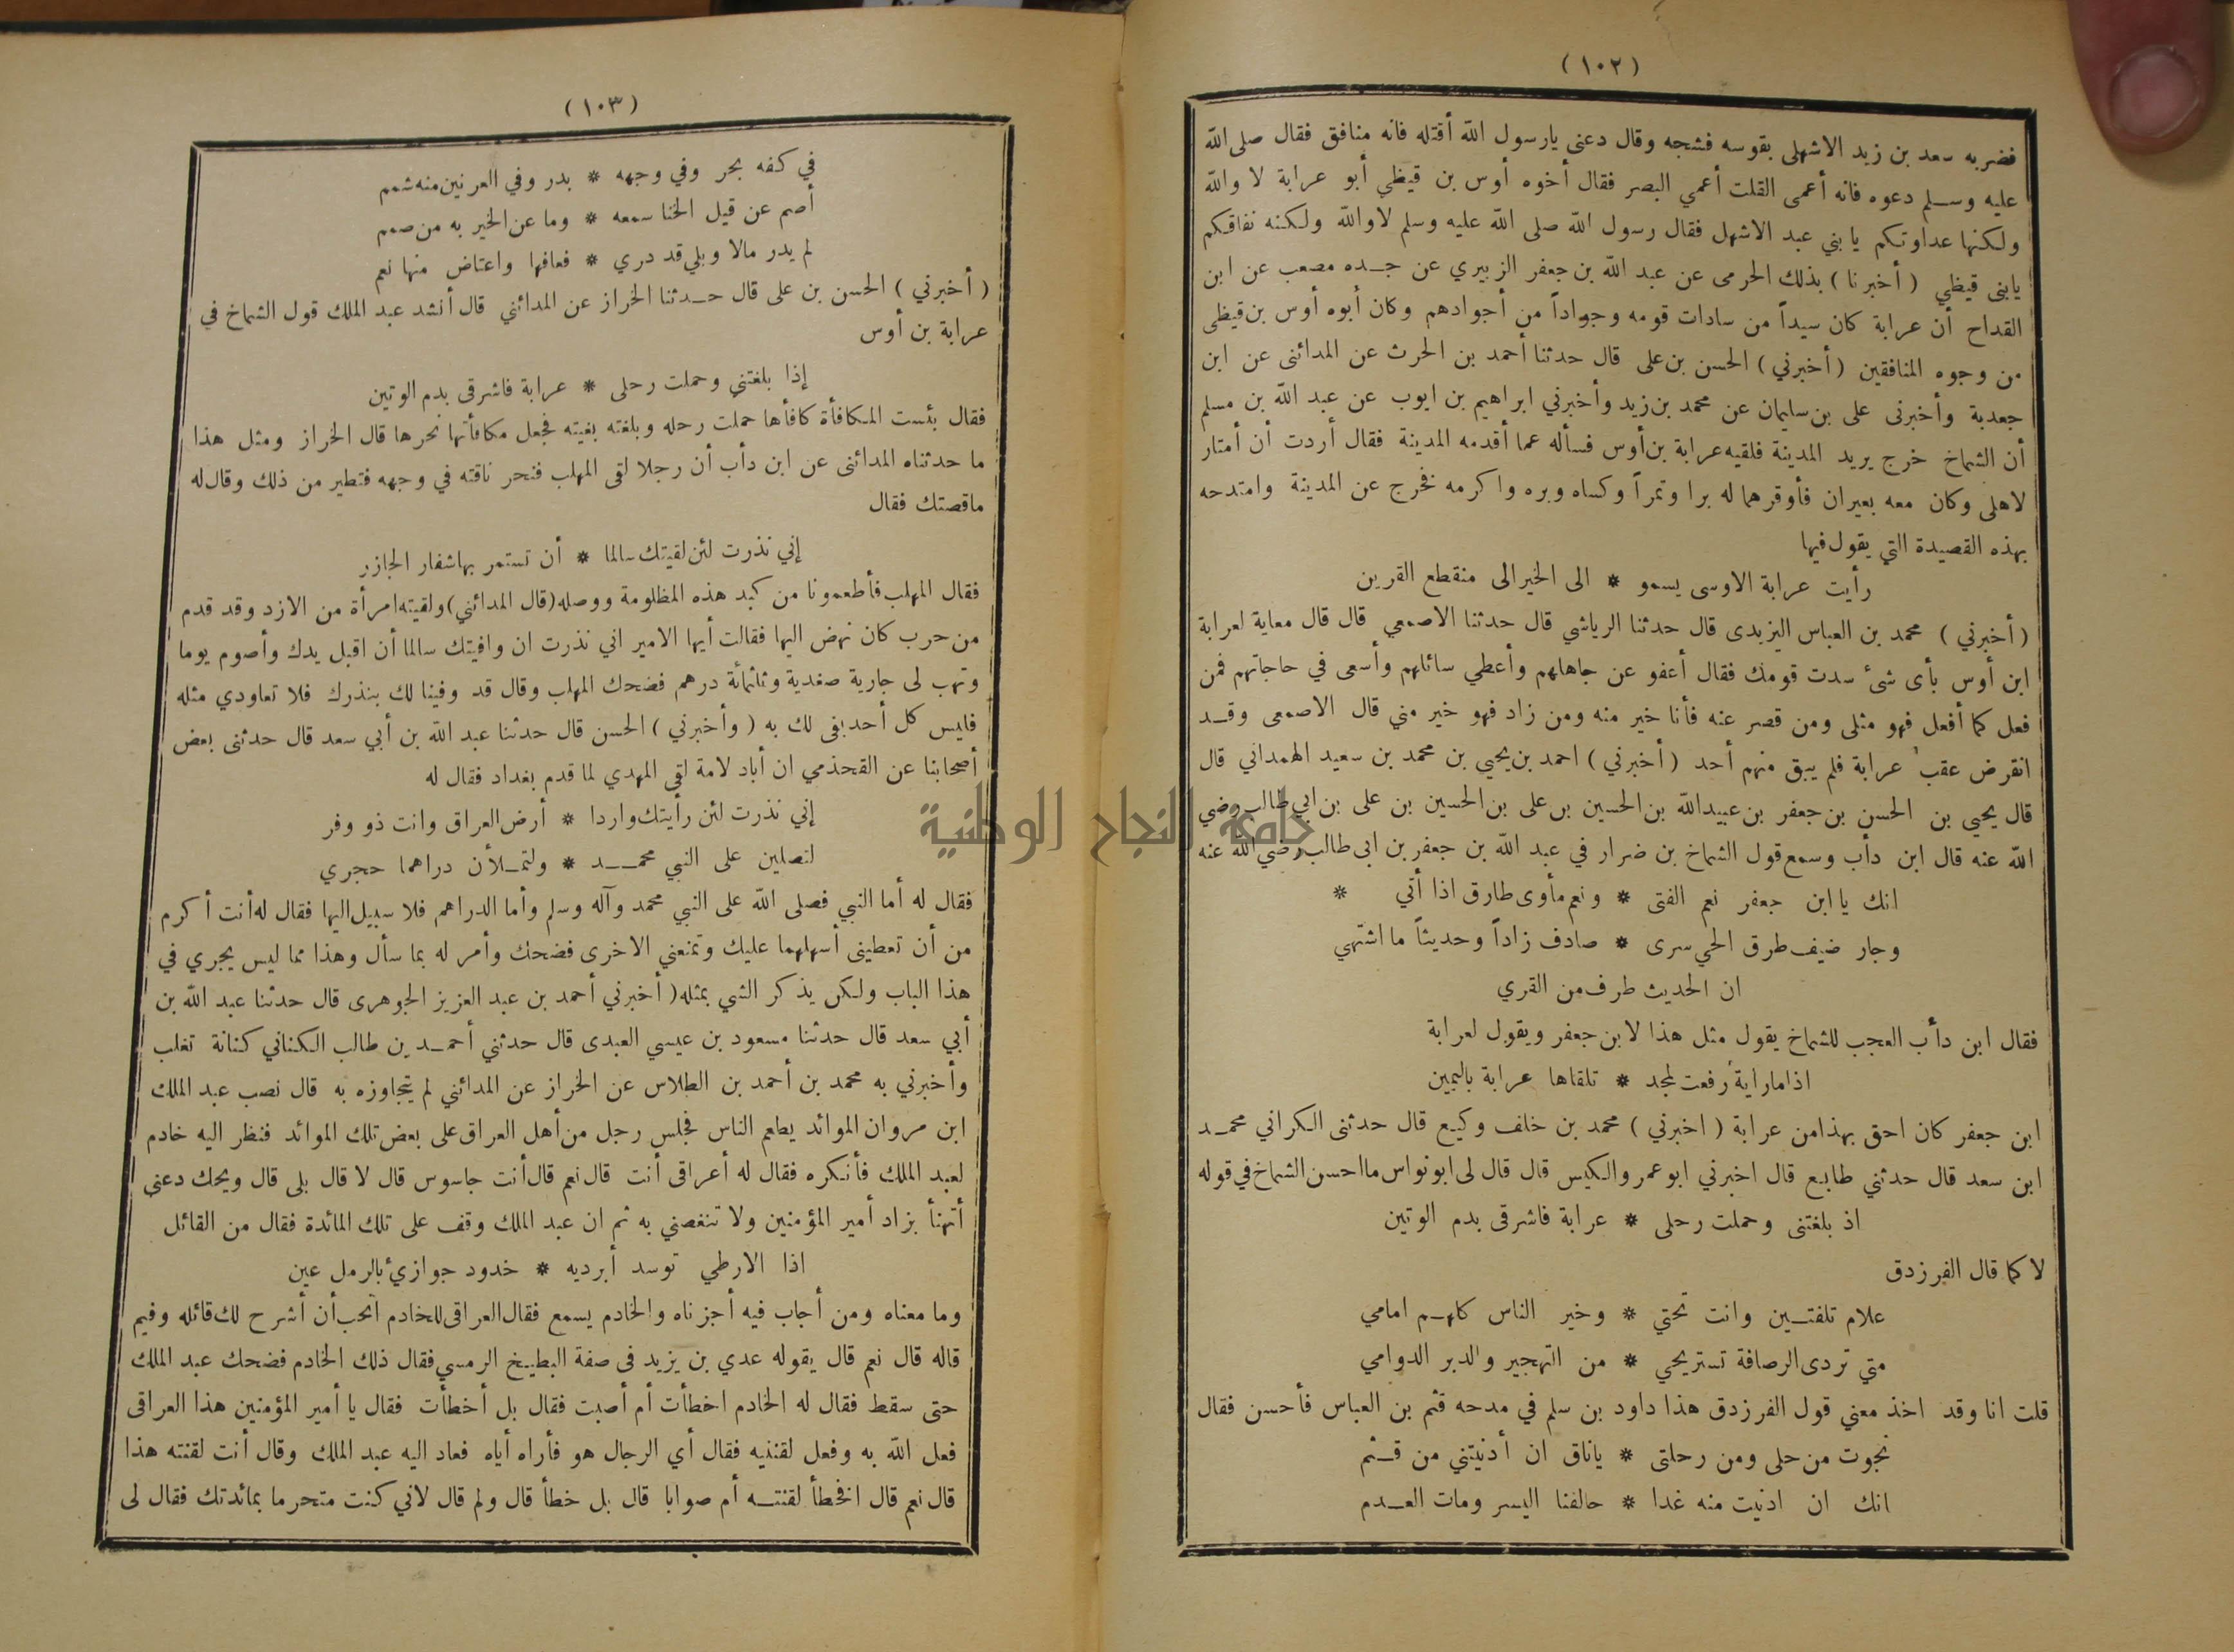 (١٠٢)
فضربه سعد بن زيد الاشهلى بقوسه فشجه وقال دعنى يارسول الله أقتله فانه منافق فقال صلى الله
عليه وسلم دعوه فانه أعمى القلت أعمي البصر فقال أخوه أوس بن قيظي أبو عرابة لا والله
ولكنها عداوتكم يا بني عبد الاشهل فقال رسول الله صلى الله عليه وسلم لا والله ولكنه نفاقكم
يابنى قيظي (أخبرنا) بذلك الحرمى عن عبد الله بن جعفر الزبيري عن جده مصعب عن ابن
القداح أن عرابة كان سيداً من سادات قومه وجواداً من أجوادهم وكان أبوه أوس بن قيظى
من وجوه المنافقين (أخبرني) الحسن بن على قال حدثنا أحمد بن الحرث عن المدائنى عن ابن
جعدبة وأخبرنى على بن سليمان عن محمد بن زيد وأخبرني ابراهيم بن ايوب عن عبد الله بن مسلم
أن الشماخ خرج يريد المدينة فلقيه عرابة بن أوس فسأله عما أقدمه المدينة فقال أردت أن أمتار
لاهلى وكان معه بعيران فأوقرهما له برا وتمراً وكساه وبره واكرمه فخرج عن المدينة وامتدحه
بهذه القصيدة التي يقول فيها
رأيت عرابة الاوسى يسمو * الى الخير الى منقطع القرين
(أخبرني) محمد بن العباس اليزيدى قال حدثنا الرياشي قال حدثنا الاصمعي قال قال معاية لعرابة
ابن أوس بأى شئ سدت قومك فقال أعفو عن جاهلهم وأعطي سائلهم وأسعى في حاجاتهم فمن
فعل كما أفعل فهو مثلى ومن قصر عنه فأنا خير منه ومن زاد فهو خير مني قال الاصمعى وقد
انقرض عقب عرابة فلم يبق منهم أحد (أخبرني) احمد بن يحيي بن محمد بن سعيد الهمداني قال
قال يحيي بن الحسن بن جعفر بن عبيدالله بن الحسين بن على بن الحسين بن على بن ابي طالب رضي
الله عنه قال ابن دأب وسمع قول الشماخ بن ضرار في عبد الله بن جعفر بن ابى طالب رضي الله عنه
انك يا ابن جعفر نعم الفتى * ونعم مأوى طارق اذا أتي *
وجار ضيف طرق الحي سرى * صادف زاداً وحديثاً ما اشتهي
ان الحديث طرف من القري
فقال ابن دأب العجب للشماخ يقول مثل هذا لابن جعفر ويقول لعرابة
اذا ماراية رفعت لمجد * تلقاها عرابة باليمين
ابن جعفر كان احق بهذا من عرابة (اخبرني) محمد بن خلف وكيع قال حدثنى الكراني محمد
ابن سعد قال حدثني طابع قال اخبرني ابو عمر والكيس قال قال لى ابو نواس ما احسن الشماخ في قوله
اذ بلغتنى وحملت رحلى * عرابة فاشرقى بدم الوتين
لا كما قال الفرزدق
علام تلفتين وانت تحتي * وخير الناس كلهم امامي
متي تردى الرصافة تستريحي * من التهجير والدبر الدوامي
قلت انا وقد اخذ معني قول الفرزدق هذا داود بن سلم في مدحه قثم بن العباس فأحسن فقال
نجوت من حلى ومن رحلتى * ياناق ان أدنيتني من قثم
انك ان ادنيت منه غدا * حالفنا اليسر ومات العدم
(١٠٣)
في كفه بحر وفي وجهه * بدر وفي العرنين منه شمم
أصم عن قيل الخنا سمعه * وما عن الخير به من صمم
لم يدر مالا وبلي قد دري * فعافها واعتاض منها نعم
(أخبرني) الحسن بن على قال حدثنا الخراز عن المدائني قال أنشد عبد الملك قول الشماخ في
عرابة بن أوس
إذا بلغتني وحملت رحلى * عرابة فاشرقى بدم الوتين
فقال بئست المكافأة كافأها حملت رحله وبلغته بغيته فجعل مكافأتها نحرها قال الخراز ومثل هذا
ما حدثناه المدائنى عن ابن دأب أن رجلا لقى المهلب فنحر ناقته في وجهه فتطير من ذلك وقال له
ماقصتك فقال
إني نذرت لئن لقيتك سالما * أن تستمر بها شفار الجازر
فقال المهلب فأطعمونا من كبد هذه المظلومة ووصله (قال المدائني) ولقيته امرأة من الازد وقد قدم
من حرب كان نهض اليها فقالت أيها الامير اني نذرت ان وافيتك سالما أن اقبل يدك وأصوم يوما
وتهب لى جارية صغدية وثلثمائة درهم فضحك المهلب وقال قد وفينا لك بنذرك فلا تعاودي مثله
فليس كل أحد يفى لك به (وأخبرني) الحسن قال حدثنا عبد الله بن أبي سعد قال حدثنى بعض
أصحابنا عن القحذمي ان أباد لامة لقى المهدي لما قدم بغداد فقال له
إني نذرت لئن رأيتك واردا * أرض العراق وانت ذو وفر
لتصلين على النبي محمد * ولتملأن دراهما حجري
فقال له أما النبي فصلى الله على النبي محمد وآله وسلم وأما الدراهم فلا سبيل اليها فقال له أنت أكرم
من أن تعطينى أسهلهما عليك وتمنعني الاخرى فضحك وأمر له بما سأل وهذا مما ليس يجري في
هذا الباب ولكن يذكر الشي بمثله (أخبرني أحمد بن عبد العزيز الجوهرى قال حدثنا عبد الله بن
أبي سعد قال حدثنا مسعود بن عيسي العبدى قال حدثني أحمد بن طالب الكناني كنانة تغلب
وأخبرني به محمد بن أحمد بن الطلاس عن الخراز عن المدائني لم يتجاوزه به قال نصب عبد الملك
ابن مروان الموائد يطعم الناس فجلس رجل من أهل العراق على بعض تلك الموائد فنظر اليه خادم
لعبد الملك فأنكره فقال له أعراقى أنت قال نعم قال أنت جاسوس قال لا قال بلى قال ويحك دعني
أتهنأ بزاد أمير المؤمنين ولا تنغصني به ثم ان عبد الملك وقف على تلك المائدة فقال من القائل
اذا الارطي توسد أبرديه * خدود جوازئ بالرمل عين
وما معناه ومن أجاب فيه أجزناه والخادم يسمع فقال العراقى للخادم أتحب أن أشرح لك قائله وفيم
قاله قال نعم قال يقوله عدي بن يزيد فى صفة البطيخ الرمسي فقال ذلك الخادم فضحك عبد الملك
حتى سقط فقال له الخادم اخطأت أم أصبت فقال بل أخطأت فقال يا أمير المؤمنين هذا العراقى
فعل الله به وفعل لقننيه فقال أي الرجال هو فأراه أياه فعاد اليه عبد الملك وقال أنت لقنته هذا
قال نعم قال افخطأ لقنته أم صوابا قال بل خطأ قال ولم قال لاني كنت متحرما بمائدتك فقال لى
جامعة النجاح الوطنية